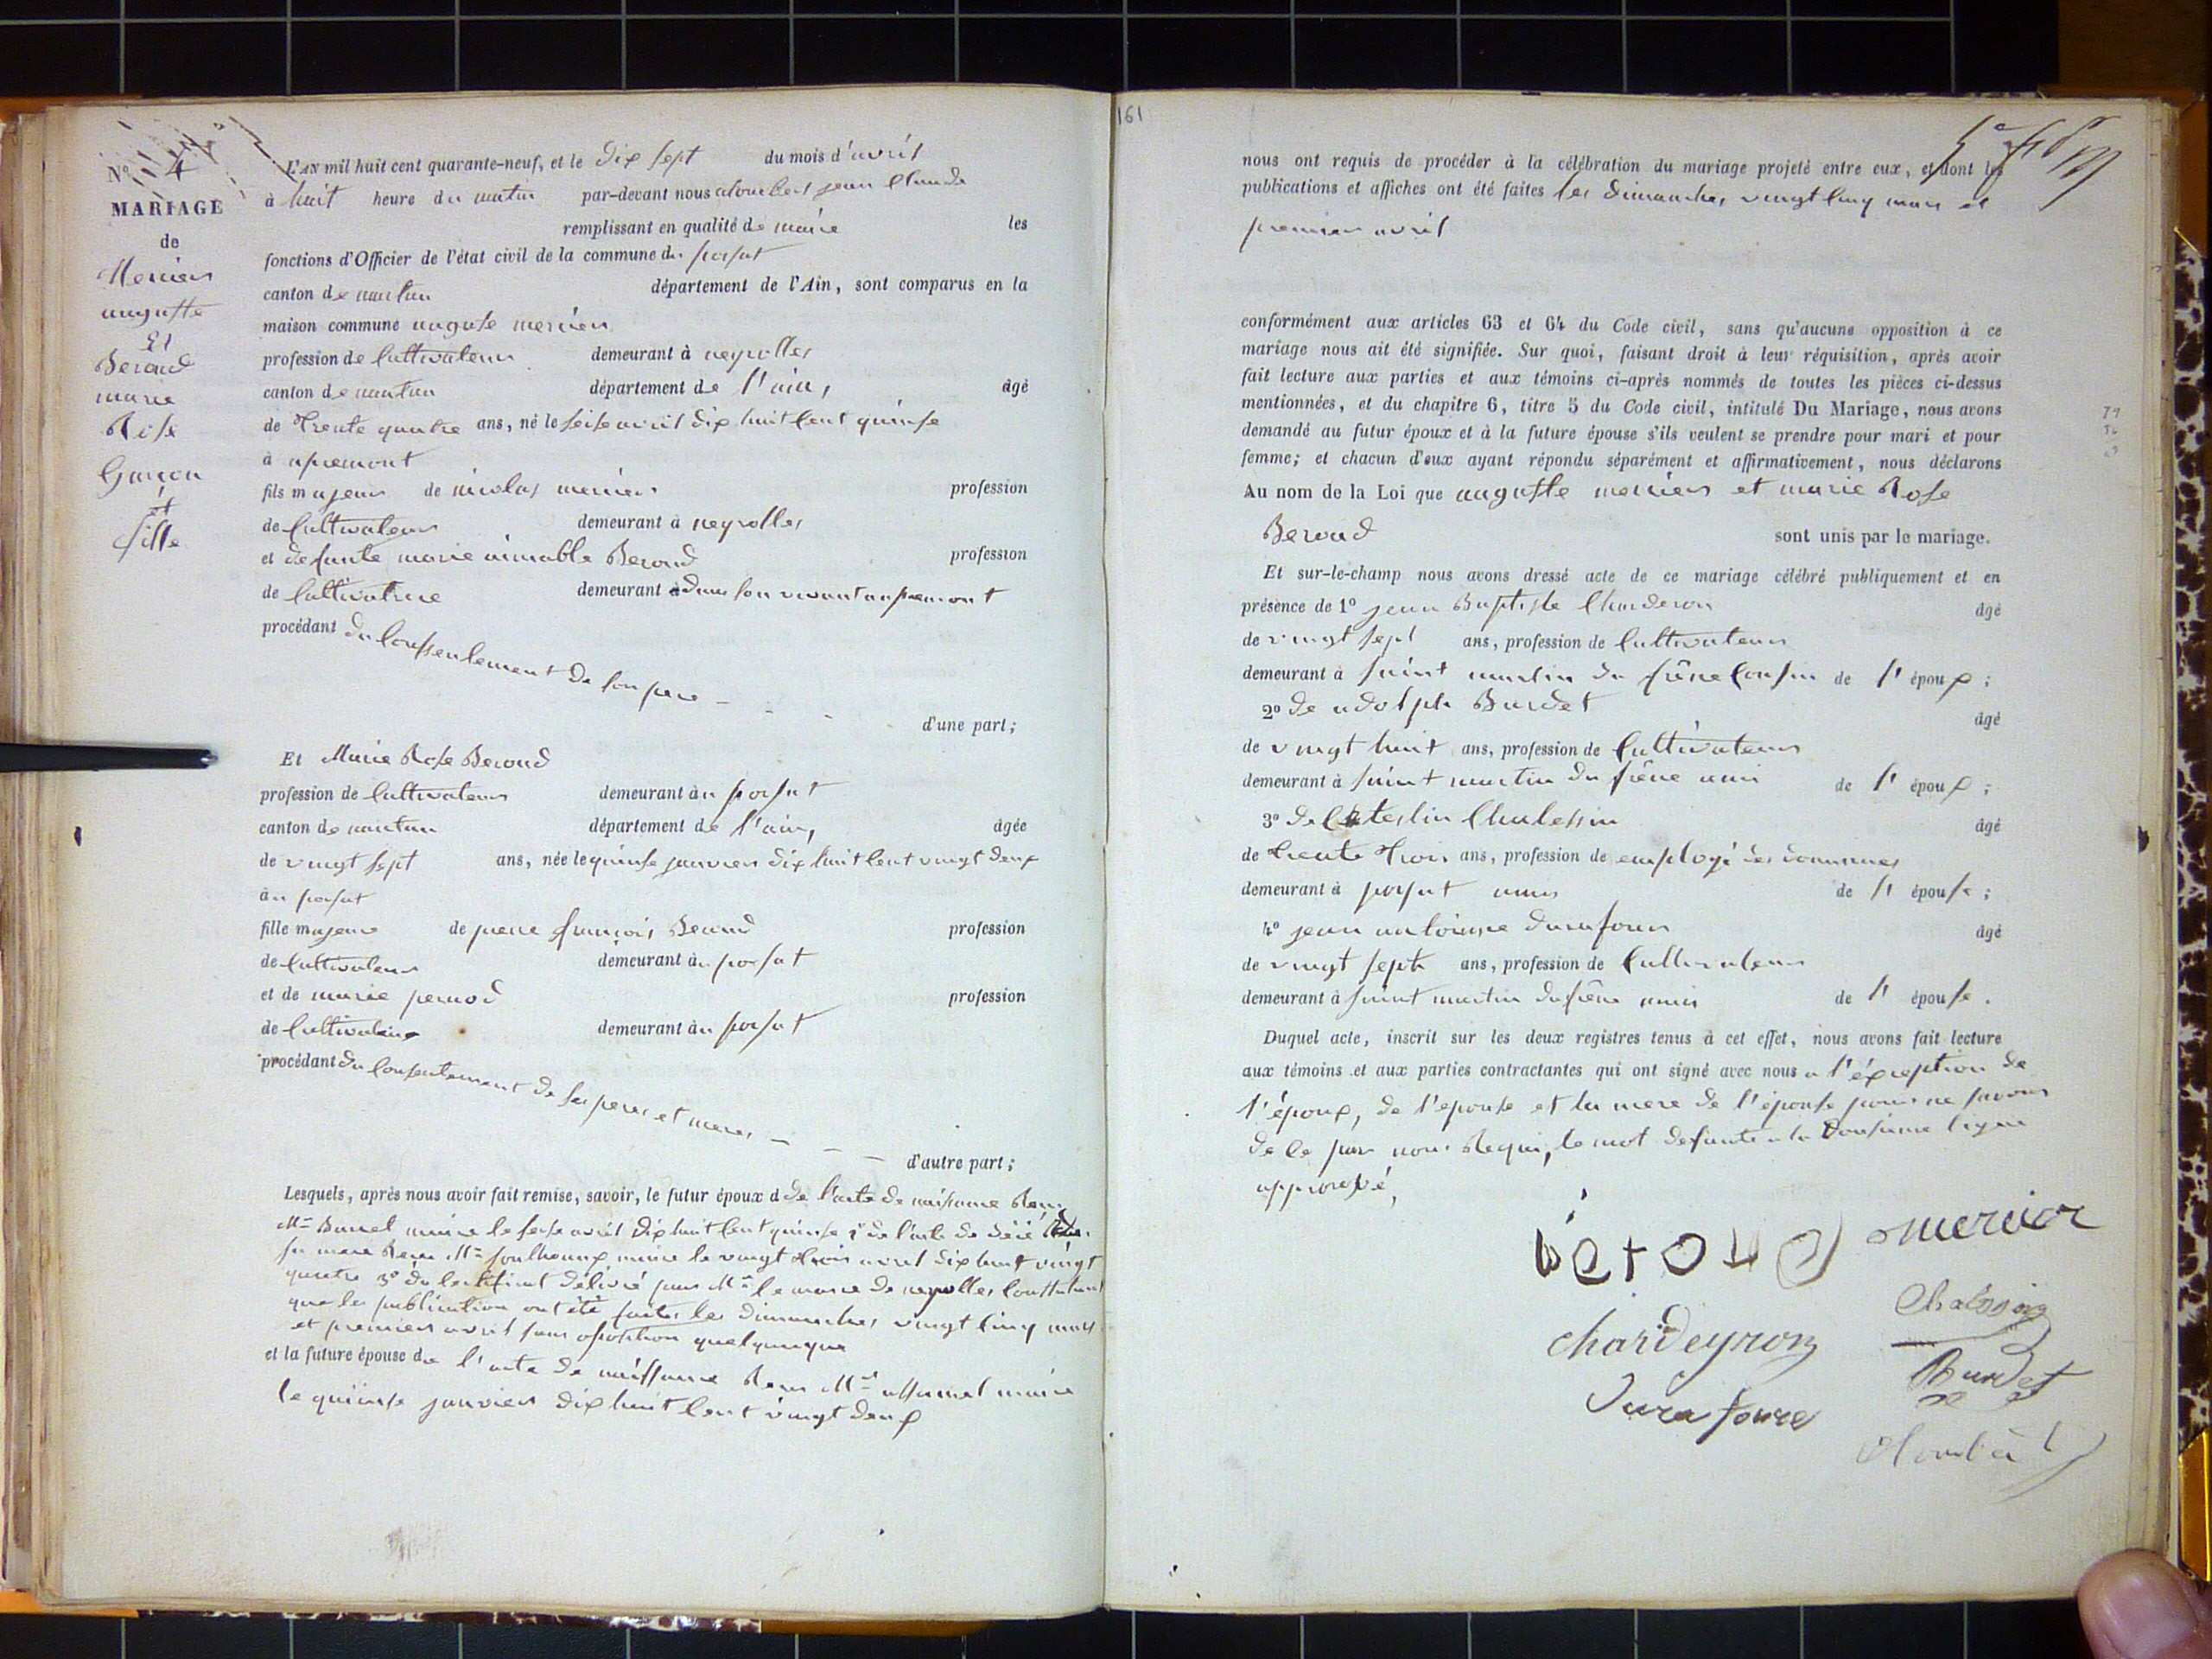 N° 4
MARIAGE
de
Mercier
auguste
Et
Beroud
marie
Rose
Garçon
et
fille
L'AN mil huit cent quarante-neuf, et le Dix sept du mois d'avril
à huit heure du matin par-devant nous jean Claude
remplissant en qualité de maire les
fonctions d'Officier de l'état civil de la commune du porsat
canton de nantua département de l'Ain, sont comparus en la
maison commune auguste mercier
profession de Cultivateur demeurant à neyrolles
canton de nantua département de l'ain, âgé
de Trente quatre ans, né le seise avril dix huit Cent quinse
à apremont
fils majeur de nicolas mercier profession
de Cultivateur demeurant à neyrolles
et defunte marie aimable Beroud profession
de Cultivatrice demeurant dans son vivant a apremont
procédant du Consentement de son pere
d'une part;
Et Marie Rose Beroud
profession de Cultivateur demeurant au porsat
canton de nantua département de l'ain, âgée
de vingt sept ans, née le quinse janvier dix huit Cent vingt deux
au porsat
fille majeure de pierre françois Beroud profession
de Cultivateur demeurant au porsat
et de marie pernod profession
de Cultivatrice demeurant au porsat
procédant du Consentement de ses peres et meres
d'autre part;
Lesquels, après nous avoir fait remise, savoir, le futur époux d de l'acte de naissance
maire le seise avril dix huit Cent quinse 2° de l'acte de décé de
sa mere maire le vingt trois avril dix huit vingt
quatre 3° du Certificat délivré par Mr le maire de neyrolles Constatant
que les publication ont été faites les dimanches vingt Cinq mars
et premier avril sans oposition quelquonque
et la future épouse de l'acte de naissance maire
le quinse janvier dix huit Cent vingt deux
161
nous ont requis de procéder à la célébration du mariage projeté entre eux, et dont les
publications et affiches ont été faites les dimanches vingt Cinq mars et
premier avril
conformément aux articles 63 et 64 du Code civil, sans qu'aucune opposition à ce
mariage nous ait été signifiée. Sur quoi, faisant droit à leur réquisition, après avoir
fait lecture aux parties et aux témoins ci-après nommés de toutes les pièces ci-dessus
mentionnées, et du chapitre 6, titre 5 du Code civil, intitulé Du Mariage, nous avons
demandé au futur époux et à la future épouse s'ils veulent se prendre pour mari et pour
femme; et chacun d'eux ayant répondu séparément et affirmativement, nous déclarons
Au nom de la Loi que auguste mercier et marie Rose
Beroud sont unis par le mariage.
Et sur-le-champ nous avons dressé acte de ce mariage célébré publiquement et en
présence de 1° jean Baptiste Charderon âgé
de vingt sept ans, profession de Cultivateur
demeurant à saint martin du frêne Cousin de l'époux;
2° de adolph Burdet âgé
de vingt huit ans, profession de Cultivateur
demeurant à saint martin du frêne ami de l'époux;
3° de Chalessin âgé
de trente trois ans, profession de employé des
demeurant à porsat amis de l'épouse;
4° jean antoine durafour âgé
de vingt sept ans, profession de Cultivateur
demeurant à saint martin du frêne amis de l'épouse.
Duquel acte, inscrit sur les deux registres tenus à cet effet, nous avons fait lecture
aux témoins et aux parties contractantes qui ont signé avec nous a l'éxception de
l'époux, de l'epouse et la mere de l'épouse pour ne savoir
de ce par nous Requi, le mot defunte a la ligne
approuvé,
béroud mercier
Chalessin
chardeyron
Burdet
Durafoure